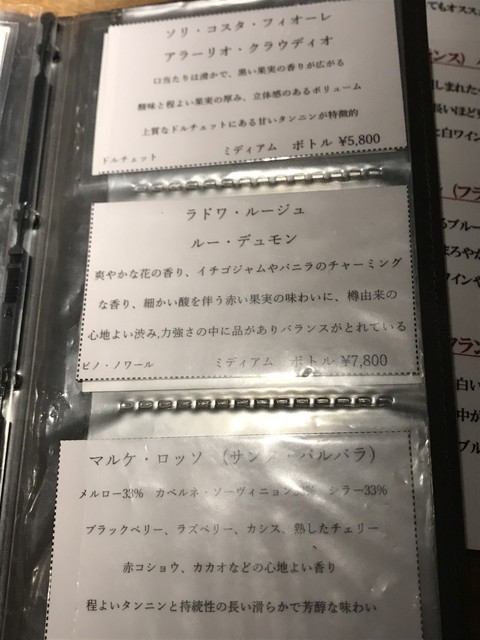 ソリ・コスタ・フィオーレ
アラーリオ・クラウディオ
口当たりは滑かで、黒い果実の香りが広がる
酸味と程よい果実の厚み、立体感のあるボリューム
上質なドルチェットにある甘いタンニンが特徴的
ドルチェット ミディアム ボトル ¥5,800
ラドワ・ルージュ
ルー・デュモン
爽やかな花の香り、イチゴジャムやバニラのチャーミング
な香り、細かい酸を伴う赤い果実の味わいに、樽由来の
心地よい渋み,力強さの中に品がありバランスがとれている
ピノ・ノワール ミディアム ボトル ¥7,800
マルケ・ロッソ (サンタ・バルバラ)
メルロー33% カベルネ・ソーヴィニョン シラー33%
ブラックベリー、ラズベリー、カシス、熟したチェリー
赤コショウ、カカオなどの心地よい香り
程よいタンニンと持続性の長い滑らかで芳醇な味わい
てもオススメ
ランス)
と白ワイン
(フラ
るブルー
ワインや
フランス
白い
中が
ブル